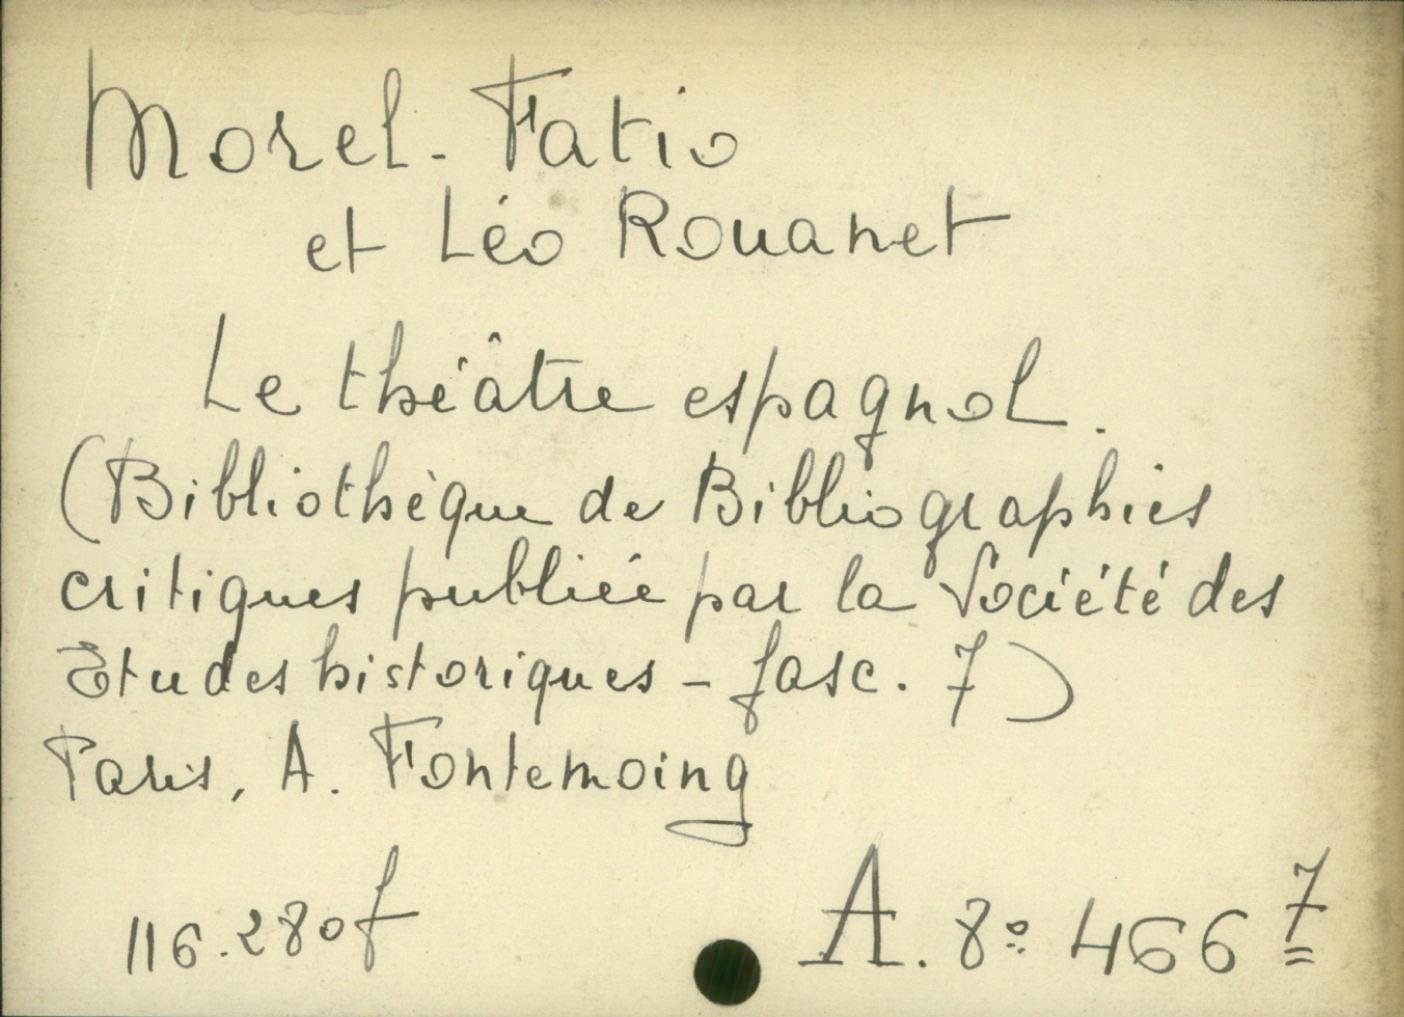 Morel-Fatio
et Léo Rouanet
Le théâtre espagnol.
(Bibliothèque de Bibliographies
critiques publiée par la Société des
Etudes historiques - fasc. 7)
Paris, A. Fontemoing
116.280 f
A. 8º 466 7